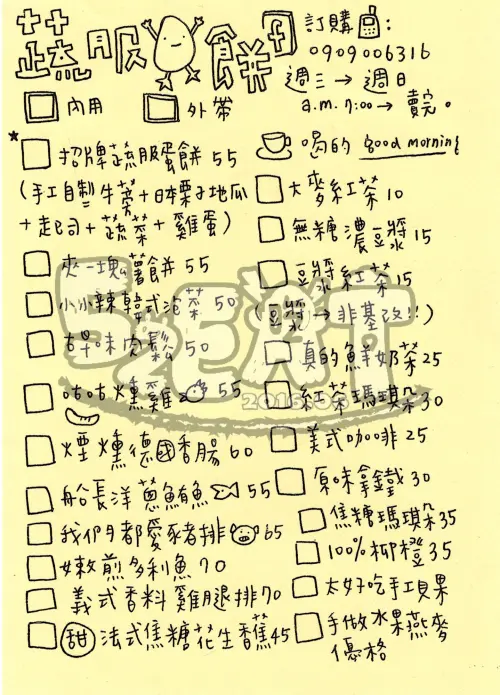 蔬服蛋餅
訂購:
0909006316
週三→週日
a.m. 7:00→賣完。
內用 外帶
招牌蔬服蛋餅 55
(手工自製牛蒡+日本栗子地瓜
+起司+蔬菜+雞蛋)
夾一塊薯餅 55
小小辣韓式泡菜 50
古早味肉鬆 50
咕咕燻雞 55
煙燻德國香腸 60
船長洋蔥鮪魚 55
我們都愛豬排 65
嫩煎多利魚 70
義式香料雞腿排 70
甜 法式焦糖花生香蕉 45
喝的 good morning
大麥紅茶 10
無糖濃豆漿 15
豆漿紅茶 15
(豆漿→非基改!!)
真的鮮奶茶 25
紅茶瑪琪朵 30
美式咖啡 25
原味拿鐵 30
焦糖瑪琪朵 35
100%柳橙 35
太好吃手工貝果
手做水果燕麥
優格